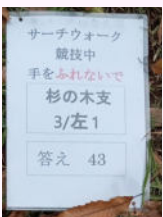 サーチウォーク
競技中
手をふれないで
杉の木支
3/左1
答え 43